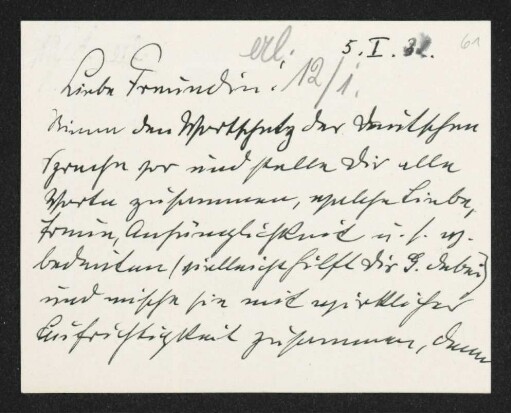 erl. 12/I.
5. I. 32.
61
Liebe Freundin!
Nimm den Wortschatz der deutschen
Sprache vor und stelle Dir alle
Worte zusammen, welche Liebe,
Treue, Anhänglichkeit u. s. w.
bedeuten (vielleicht hilft Dir G. dabei)
und mische sie mit wirklicher
Aufrichtigkeit zusammen, dann